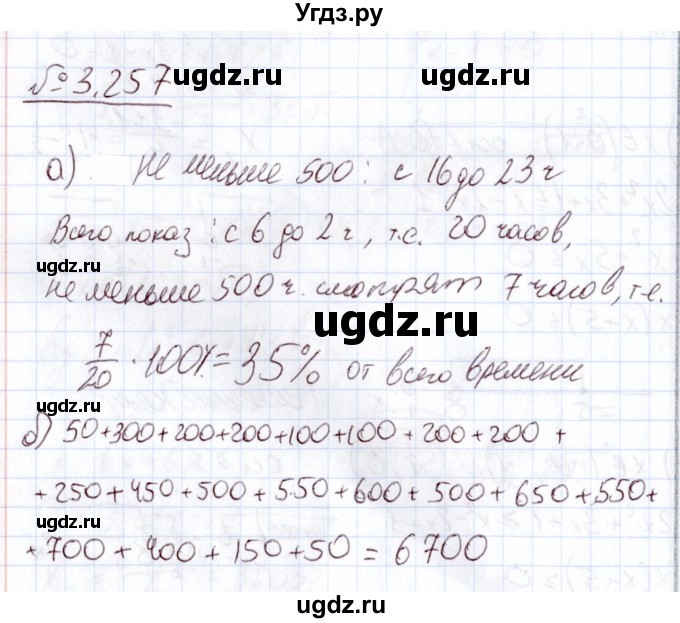 Угдз.ру
№ 3.257
ugdz.ru ugdz.ru
а) не меньше 500: с 16 до 23 ч
Всего показ: с 6 до 2 ч, т.е. 20 часов,
ugdz.ru
не меньше 500 ч. смотрят 7 часов, т.е.
ugdz.ru
7/20 · 100% = 35% от всего времени
ugdz.ru
б) 50+300+200+200+100+100+200+200+
+250+450+500+550+600+500+650+550+
ugdz.ru
+700+400+150+50=6700
ugdz.ru ugdz.ru
ugdz.ru